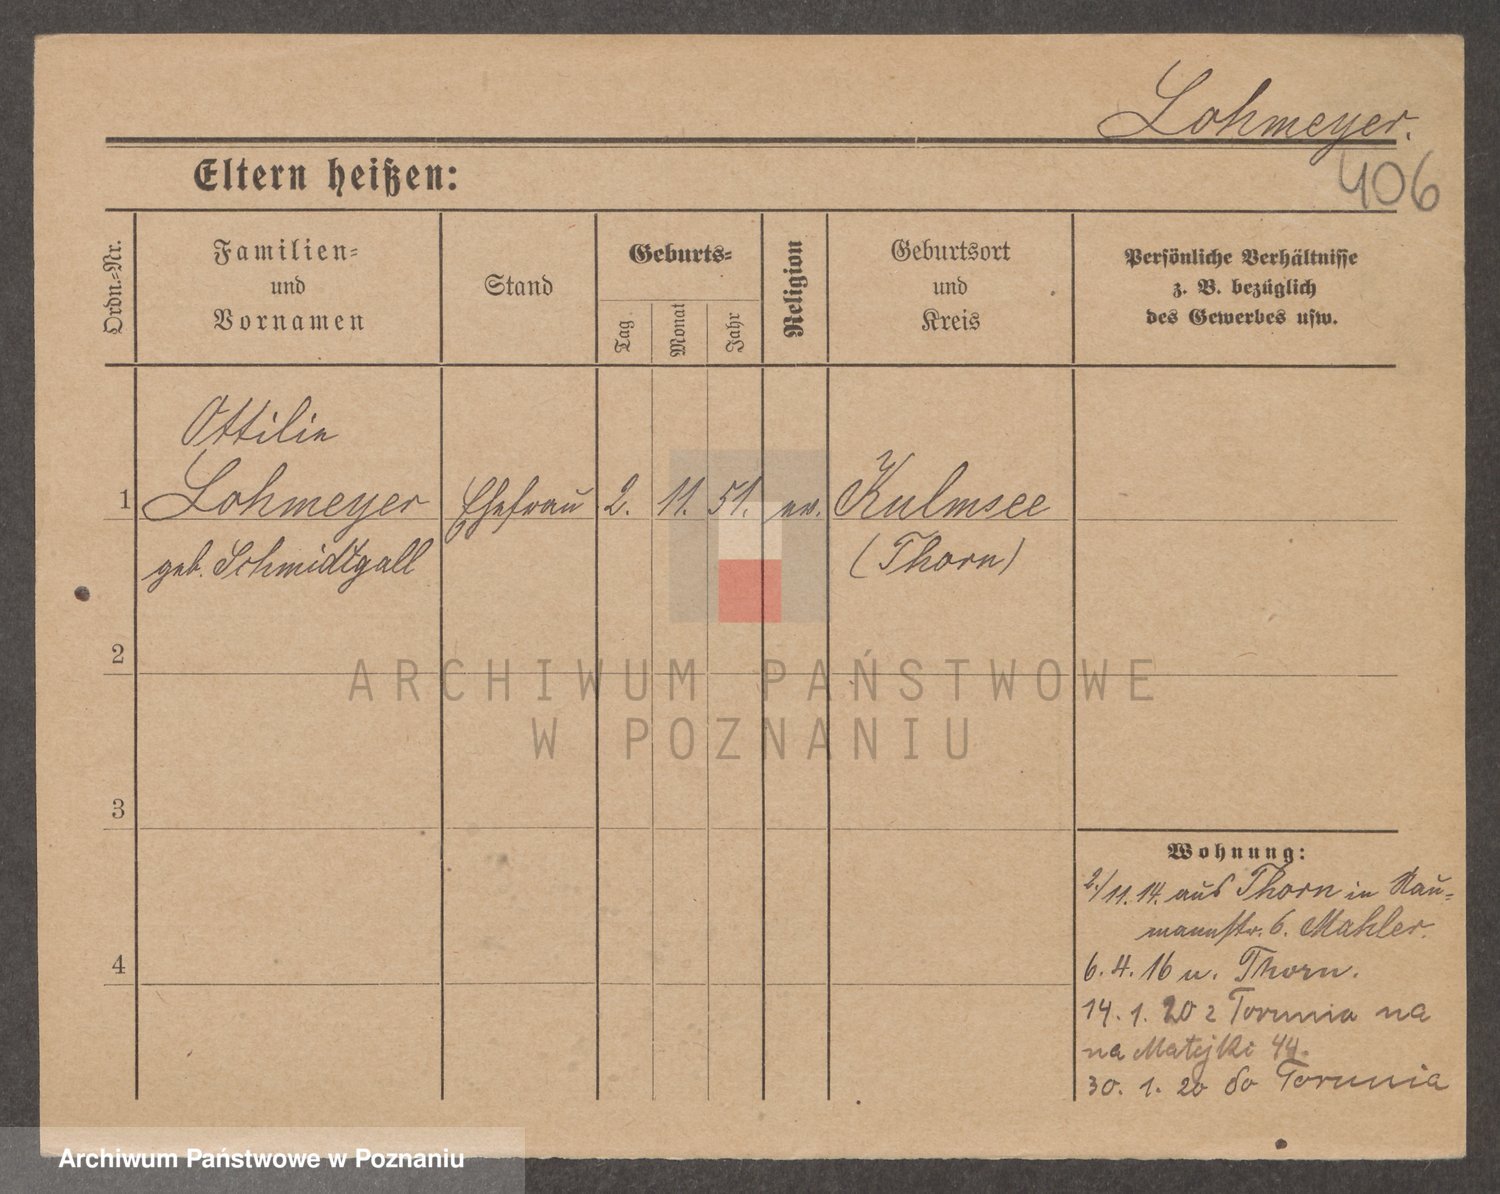 Lohmeyer.
406
Eltern heißen:
Ordn.-Nr.
Familien-
und
Vornamen
Stand
Geburts-
Tag
Monat
Jahr
Religion
Geburtsort
und
Kreis
Persönliche Verhältnisse
z. B. bezüglich
des Gewerbes usw.
Ottilie
1 Lohmeyer Ehefrau 2. 11. 51. ev. Kulmsee
geb. Schmidtgall (Thorn)
2
ARCHIWUM PAŃSTWOWE
W POZNANIU
3
Wohnung:
2./11.14. aus Thorn in Nau-
mannstr. 6. Mahler.
4
6. 4. 16 n. Thorn.
14. 1. 20 z Torunia na
na Matejki 44.
30. 1. 20 do Torunia
Archiwum Państwowe w Poznaniu